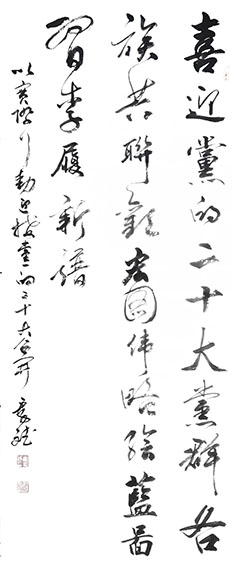 喜迎黨的二十大黨群各
族共聯歡宏圖偉略繪藍圖
習李履新譜
以實際行動迎接黨的二十大召開